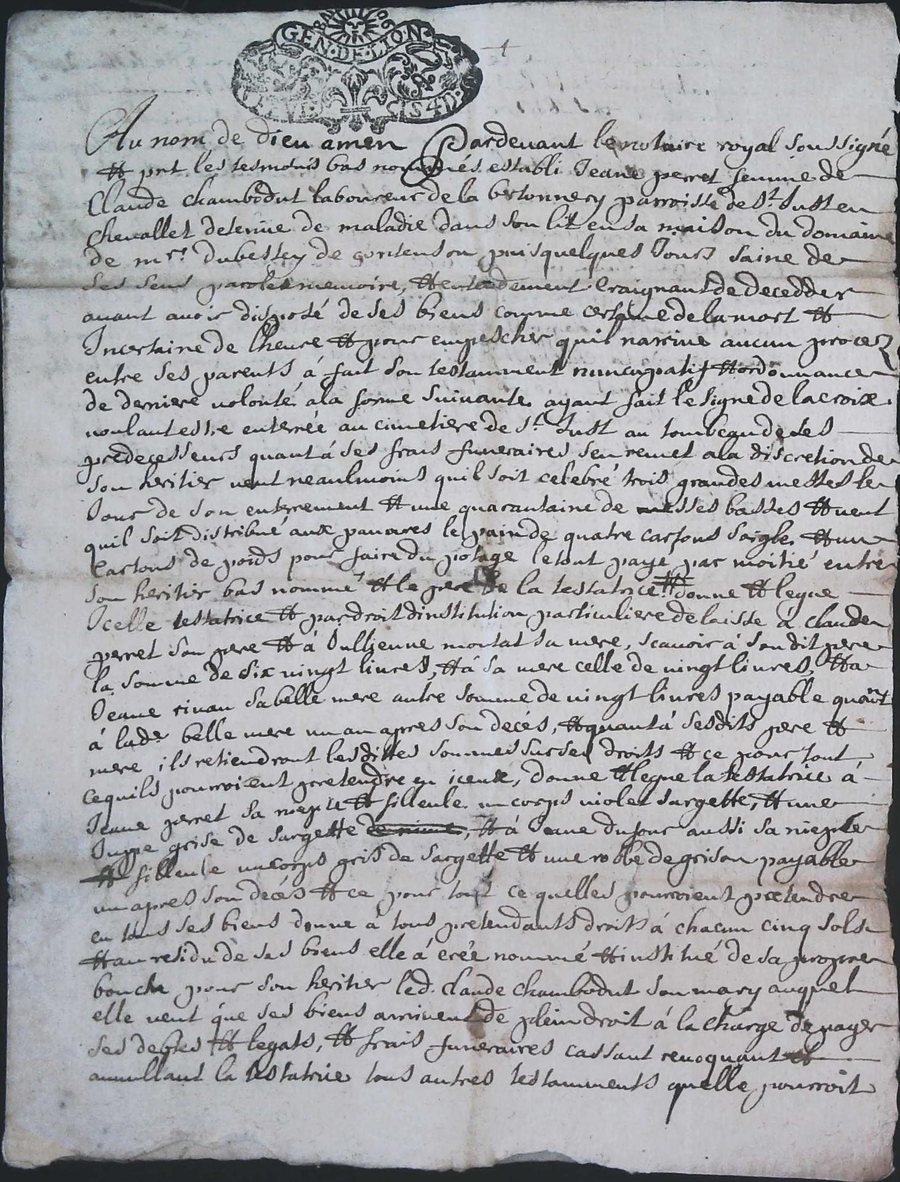 GEN·DE·LION
S4D
1
Au nom de dieu amen Pardevant le notaire royal soussigné
et pnt les tesmoins bas nommés establi Jeane perret femme de
Claude chambodut laboureur de la bretonnery parroisse de St Just en
chevallet detenue de maladie dans son lit en sa maison du domaine
de mr. Dubessey de contenson puis quelques Jours saine de
ses sens parolle memoire, et entendement Craignans de decedder
avant avoir disposé de ses biens comme certaine de la mort et
Incertaine de lheure et pour empescher quil narrive aucun procez
entre ses parents à fait son testamment nuncupatif et ordonnance
de derniere volonté a la forme suivante ayant fait le signe de la croix
voulant estre enterrée au cimetiere de St Just au tombeau de ses
predecesseurs quant à ses frais funeraires sen remet a la discretion de
son heritier veut neaulmoins quil soit celebré trois grandes messes le
Jour de son enterrement et une quarantaine de messes basses et veut
quil soit distribué aux pauvres le pain de quatre cartons soigle et un
Cartons de poids pour faire du potage le tout payé par moitié entre
son heritier bas nommé et le pere de la testatrice donne et legue
Icelle testatrice et par droit dinstitution particuliere delaisse à claude
perret son pere et à Jullienne mortat sa mere, scavoir à son dit pere
la somme de six vingt livres, et à sa mere celle de vingt livres, et a
Jeane sa belle mere autre somme de vingt livres payable quant
à lade belle mere un an apres son deces, et quant a sesdits pere et
mere ils retiendront lesdittes sommes sur ses droits et ce pour tout
ce quils pourroient pretendre en iceux, donne et legue la testatrice à
Jeane perret sa niepce et filleule un corps violet sargette, et une
Juppe grise de sargette, et à Jeane dufour aussi sa niepce
et filleule un corps gris de sargette et une robbe de grison payable
un apres son decés et ce pour tout ce quelles pourroient pretendre
en tous ses biens donne à tous pretendants droits à chacun cinq sols
et au residu de ses biens elle à créé nommé et institué de sa propre
bouche pour son heritier led. claude chambodut son mary auquel
elle veut que ses biens arrivent de plein droit à la charge de payer
ses debtes et legats, et frais funeraires cassant revoquant et
annullant la testatrice tous autres testamments quelle pourroit